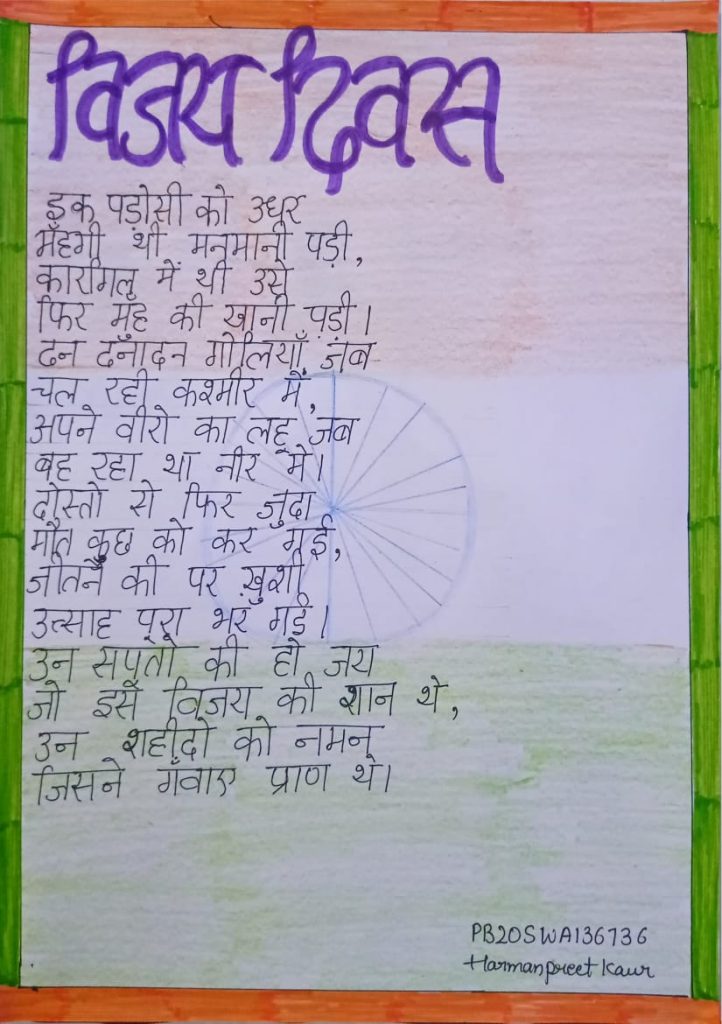 विजय दिवस
इक पड़ोसी को उधर
मँहगी थी मनमानी पड़ी,
कारगिल में थी उसे
फिर मुँह की खानी पड़ी।
दन दनादन गोलियाँ जब
चल रही कश्मीर में,
अपने वीरो का लहू जब
बह रहा था नीर में।
दोस्तो से फिर जुदा
मौत कुछ को कर गई,
जीतने की पर ख़ुशी
उत्साह पूरा भर गई।
उन सपूतो की हो जय
जो इस विजय की शान थे,
उन शहीदो को नमन
जिसने गँवाए प्राण थे।
PB20SWA136736
Harmanpreet Kaur